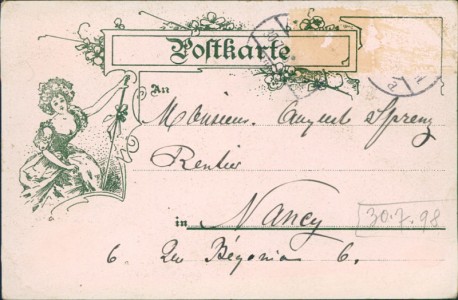 Postkarte
An
Monsieur August Sprenz
Rentier
in Nancy
30.7.98
6 Rue Bégonias 6.